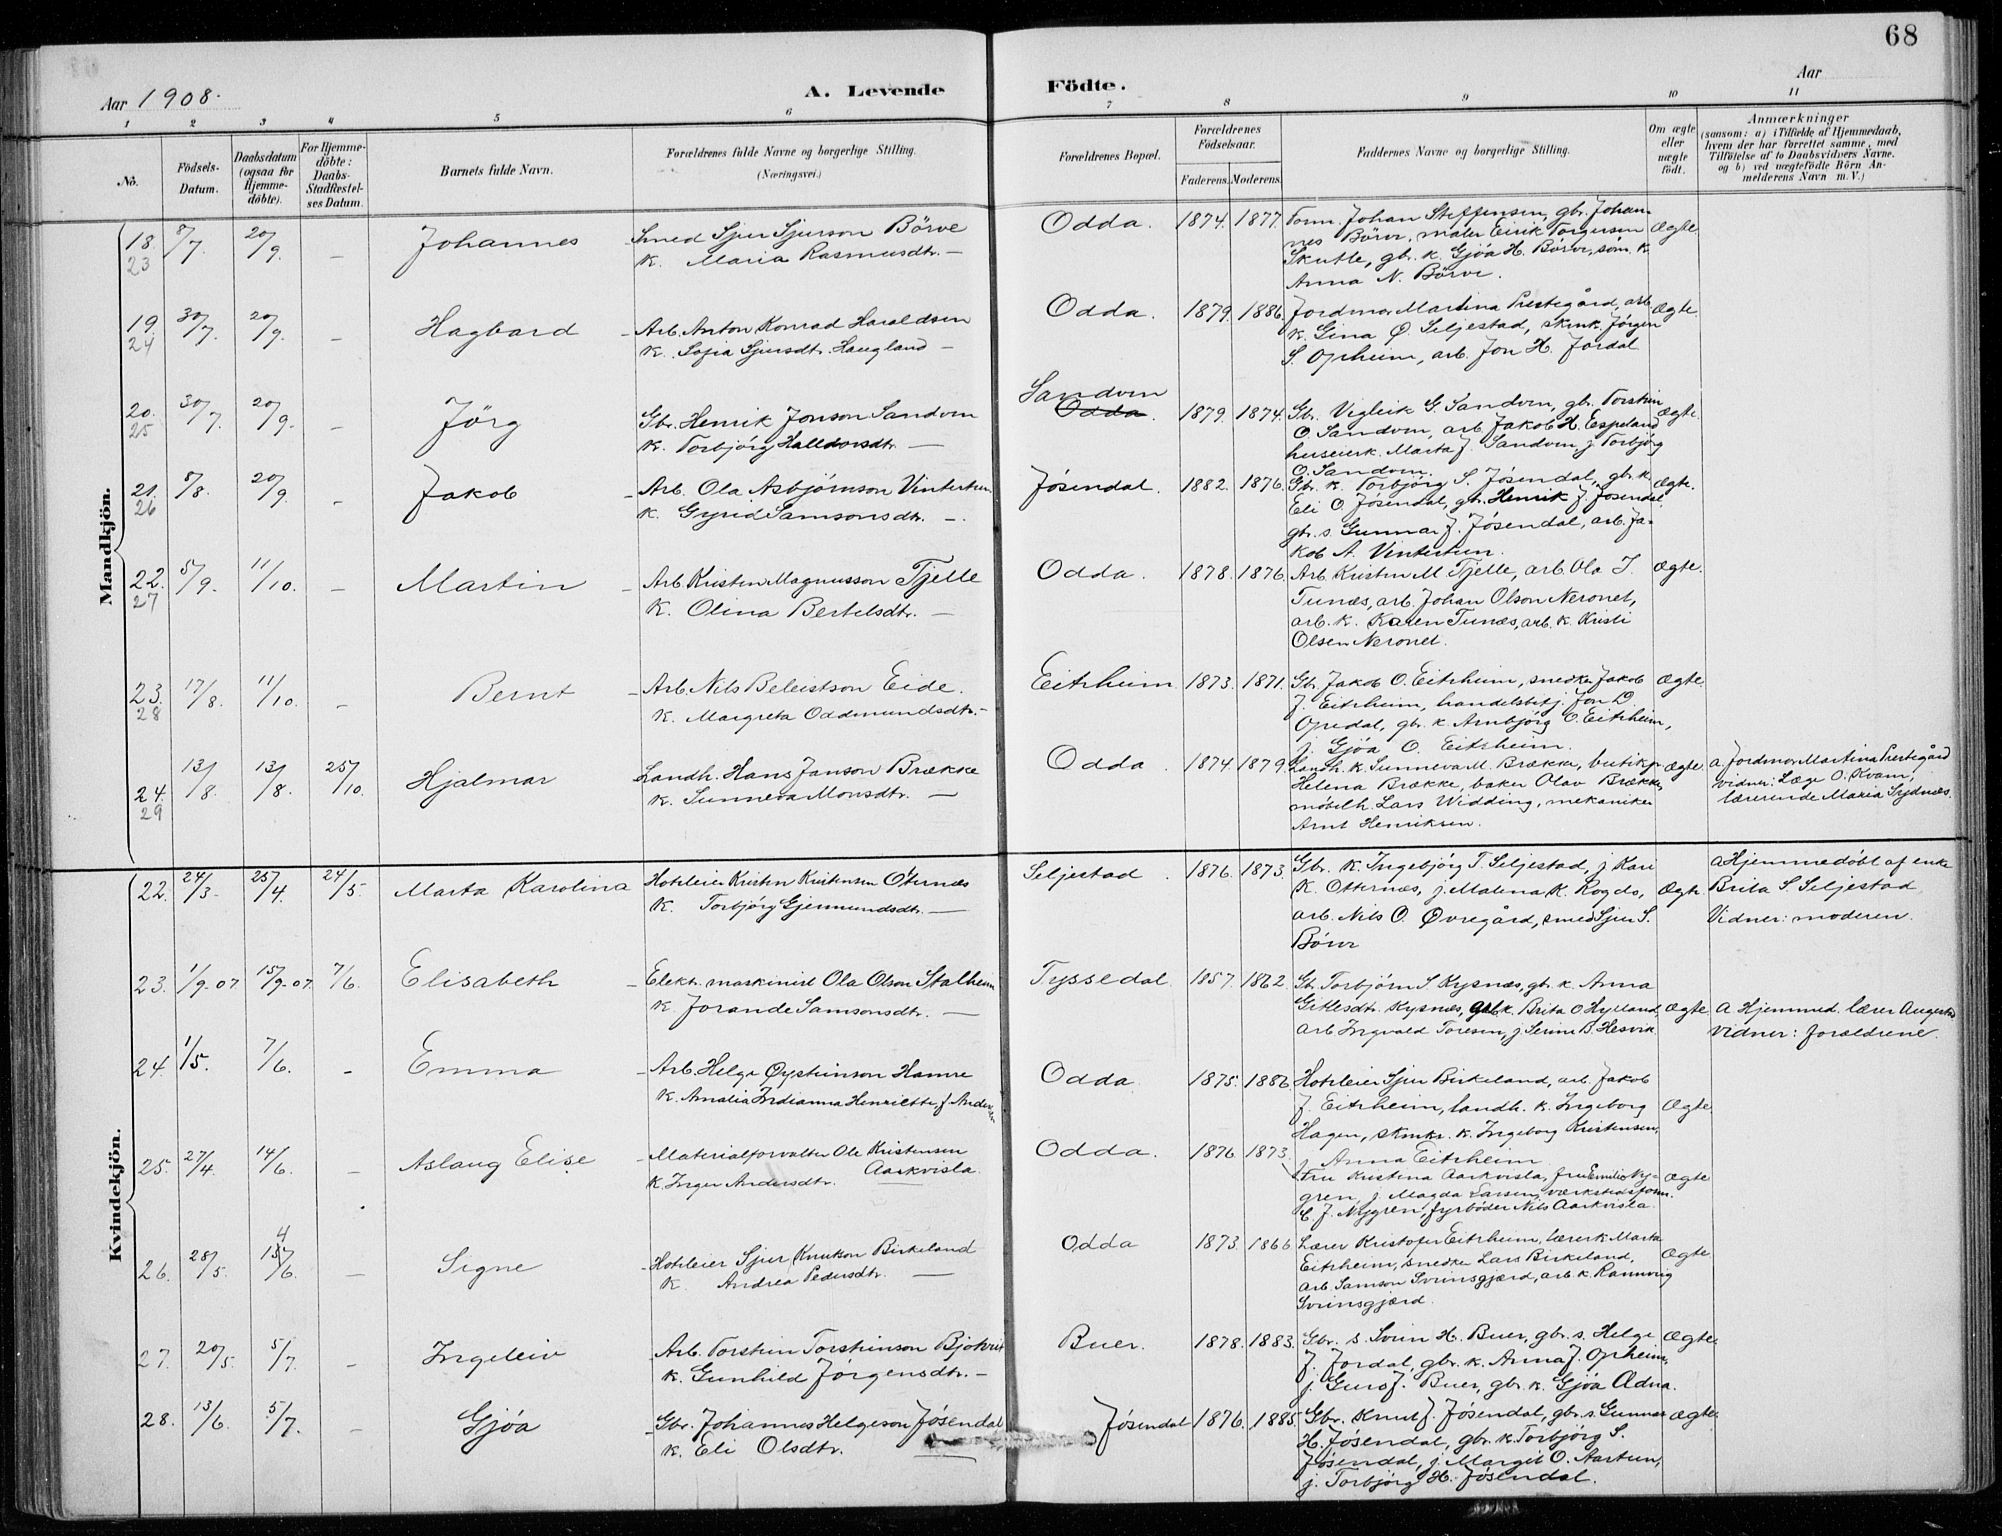 68
Aar 1908.
A. Levende
Födte.
Aar
1 2 3 4 5 6 7 8 9 10 11
No.
Födsels-
Datum.
Daabsdatum
(ogsaa for
Hjemme-
döbte).
For Hjemme-
döbte:
Daabs-
Stadfæstel-
ses Datum.
Barnets fulde Navn.
Forældrenes fulde Navne og borgerlige Stilling.
(Næringsvei.)
Forældrenes Bopæl.
Forældrenes
Födselsaar.
Faderens. Moderens.
Faddernes Navne og borgerlige Stilling.
Om ægte
eller
uægte
födt.
Anmærkninger
(saasom: a) i Tilfælde af Hjemmedaab,
hvem der har forrettet samme, med
Tilföielse af to Daabsvidners Navne.
og b) ved uægtefödte Börn An-
melderens Navn m. V.)
Mandkjön.
18. 23 8/7 20/9. – Johannes
Smed Sjur Sjurson Börve
K. Maria Rasmusdtr. –
Odda. 1874. 1877.
Form. Johan Steffensen, gbr. Johan-
nes Börve, maler Eirik Torgersen
Skutle, gbr. k. Gjöa H. Börve, söm. k.
Anna N. Börve.
Ægte.
19. 24 30/7. 20/9. – Hagbard
Arb. Anton Konrad Haraldsen
K. Sofia Sjursdtr. Haugland –
Odda. 1879. 1886.
Jordmor Martina Prestegård, arb.
k. Gina Ø. Seljestad, skmk. Jörgen
S. Opheim, arb. Jon H. Jordal
Ægte.
20. 25 30/7. 20/9. – Jörg
Gbr. Henrik Jonson Sandven
K. Torbjörg Halldorsdtr. –
Sandven
Odda. 1879. 1874.
Gbr. Vigleik G. Sandven, gbr. Torstein
O. Sandven, arb. Jakob H. Espeland
huseierk. Marta J. Sandven, j. Torbjörg
O. Sandven.
ægte.
21. 26 5/8. 20/9. – Jakob
Arb. Ola Asbjörnson Vintertun
K. Gyrid Samsonsdtr. –
Jösendal. 1882. 1876.
Gbr. k. Torbjörg S. Jösendal, gbr. k.
Eli O. Jösendal, gbr. Henrik J. Jösendal,
gbr. s. Gunnar J. Jösendal, arb. Ja-
kob A. Vintertun.
ægte.
22. 27 5/9. 11/10. – Martin
Arb. Kristen Magnusson Tjelle
K. Olina Bertelsdtr. –
Odda. 1878. 1876.
Arb. Kristen M. Tjelle, arb. Ola J.
Tunæs, arb. Johan Olson Neronet,
arb. k. Karen Tunæs, arb. k. Kristi
Olsen Neronet.
ægte.
23. 28 17/8. 11/10. – Bernt
Arb. Nils Beleistson Eide.
K. Margreta Oddmundsdtr. –
Eitrheim 1873. 1871.
Gbr. Jakob O. Eitrheim, snedker Jakob
J. Eitrheim, handelsbetj. Jon D.
Opedal, gbr. k. Arnbjörg O. Eitrheim,
j. Gjöa O. Eitrheim.
Ægte
24. 29 13/8. 13/8. 25/10. Hjalmar
Landh. Hans Janson Brække
K. Sunneva Monsdtr. –
Odda. 1874. 1879.
Landh. k. Sunneva M. Brække, butikj.
Helena Brække, baker Olav Brække,
möbelh. Lars Widding, mekaniker
Arnt Henriksen.
ægte.
a. Jordmor Martina Prestegård
vidner: Læge O. Kvam,
lærerinde Maria Sydnæs.
Kvindekjön.
22. 24/3. 25/4. 24/5. Marta Karolina
Hoteleier Kristen Kristensen Oternæs
K. Torbjörg Gjermundsdtr. –
Seljestad. 1876. 1873.
Gbr. k. Ingebjörg T. Seljestad, j. Kari
K. Otternæs, j. Malena K. Rogds,
arb. Nils O. Øvregård, smed Sjur S.
Börve
Ægte.
a Hjemmedöbt af enke
Brita S. Seljestad
Vidner: moderen.
23. 1/9-07 15/9-07. 7/6. Elisabeth
Elektr. maskinist Ola Olson Stalheim
K. Jorande Samsonsdtr. –
Tyssedal. 1857. 1862.
Gb. Torbjörn S. Kysnæs, gbr. k. Anna
Gitlesdtr. Kysnæs, gbr. k. Brita O. Hylland,
arb. Ingvald Toresen, j. Serine B. Hesvik
ægte
a Hjemmed. lærer Augestad
Vidner: forældrene.
24. 1/5. 7/6. – Emma
Arb. Helge Øysteinson Hamre
K. Amalia Indianna Henriette f. Anders
Odda 1875. 1886.
Hoteleier Sjur Birkeland, arb. Jakob
J. Eitrheim, landh. k. Ingeborg
Hagen, skmkr. k. Ingeborg Kristensen,
j. Anna Eitrheim
Ægte
25. 27/4. 14/6. – Aslaug Elise
Materialforvalter Ole Kristensen
Aarkvisla.
K. Inger Andersdtr.
Odda. 1876. 1873.
fru Kristina Aarkvisla, fru Emilie Ny-
gren, j. Magda Larsen, værkstedsform.
C. J. Nygren, fyrböder Nils Aarkvisla.
ægte
26. 28/5. 14/6. – Signe
Hoteleier Sjur Knutson Birkeland
K. Andrea Pedersdtr. –
Odda 1873. 1866
Lærer Kristofer Eitrheim, lærerk. Marta
Eitrheim, snedker Lars Birkeland,
arb. Samson Sveinsgjærd, arb. k. Rannveig
Sveinsgjærd.
Ægte
27. 20/5. 5/7. – Ingeleiv
Arb. Torstein Torsteinson Bjotveit
K. Gunhild Jörgensdtr. –
Buer. 1878. 1883.
Gbr. s. Svein H. Buer, gbr. s. Helge
J. Jordal, gbr. k. Anna J. Opheim,
j. Guro J. Buer, gbr. k. Gjöa Ædna.
Ægte
28. 13/6. 5/7. – Gjöa
Gbr. Johannes Helgeson Jösendal
K. Eli Olsdtr.
Jösendal 1876. 1885.
Gbr. Knut J. Jösendal, gbr. s. Gunnar
H. Jösendal, gbr. k. Torbjörg S.
Jösendal, j. Margit O. Aartun,
j. Torbjörg H. Jösendal.
ægte.